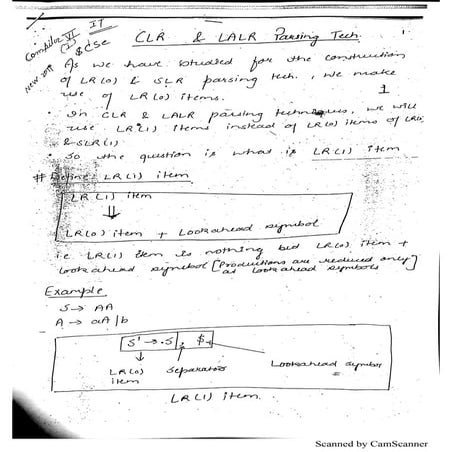 IT
Compiler VI
& CSE
New 2019
CLR & LALR Parsing Tech.
As we have studied for the construction
of LR(0) & SLR parsing tech., we make
use of LR(0) items.
1
• In CLR & LALR parsing techniques, we will
use LR(1) items instead of LR(0) items of LR(0)
& SLR(1)
• So the question is what is LR(1) item
# Define LR(1) item
LR(1) item
⇓
LR(0) item + Lookahead symbol
i.e LR(1) item is nothing but LR(0) item +
Lookahead symbol [Productions are reduced only
at lookahead symbols
Example
S → AA
A → aA | b
S' → .S , $
LR(0) Separator Lookahead symbol
item
LR(1) item.
Scanned by CamScanner